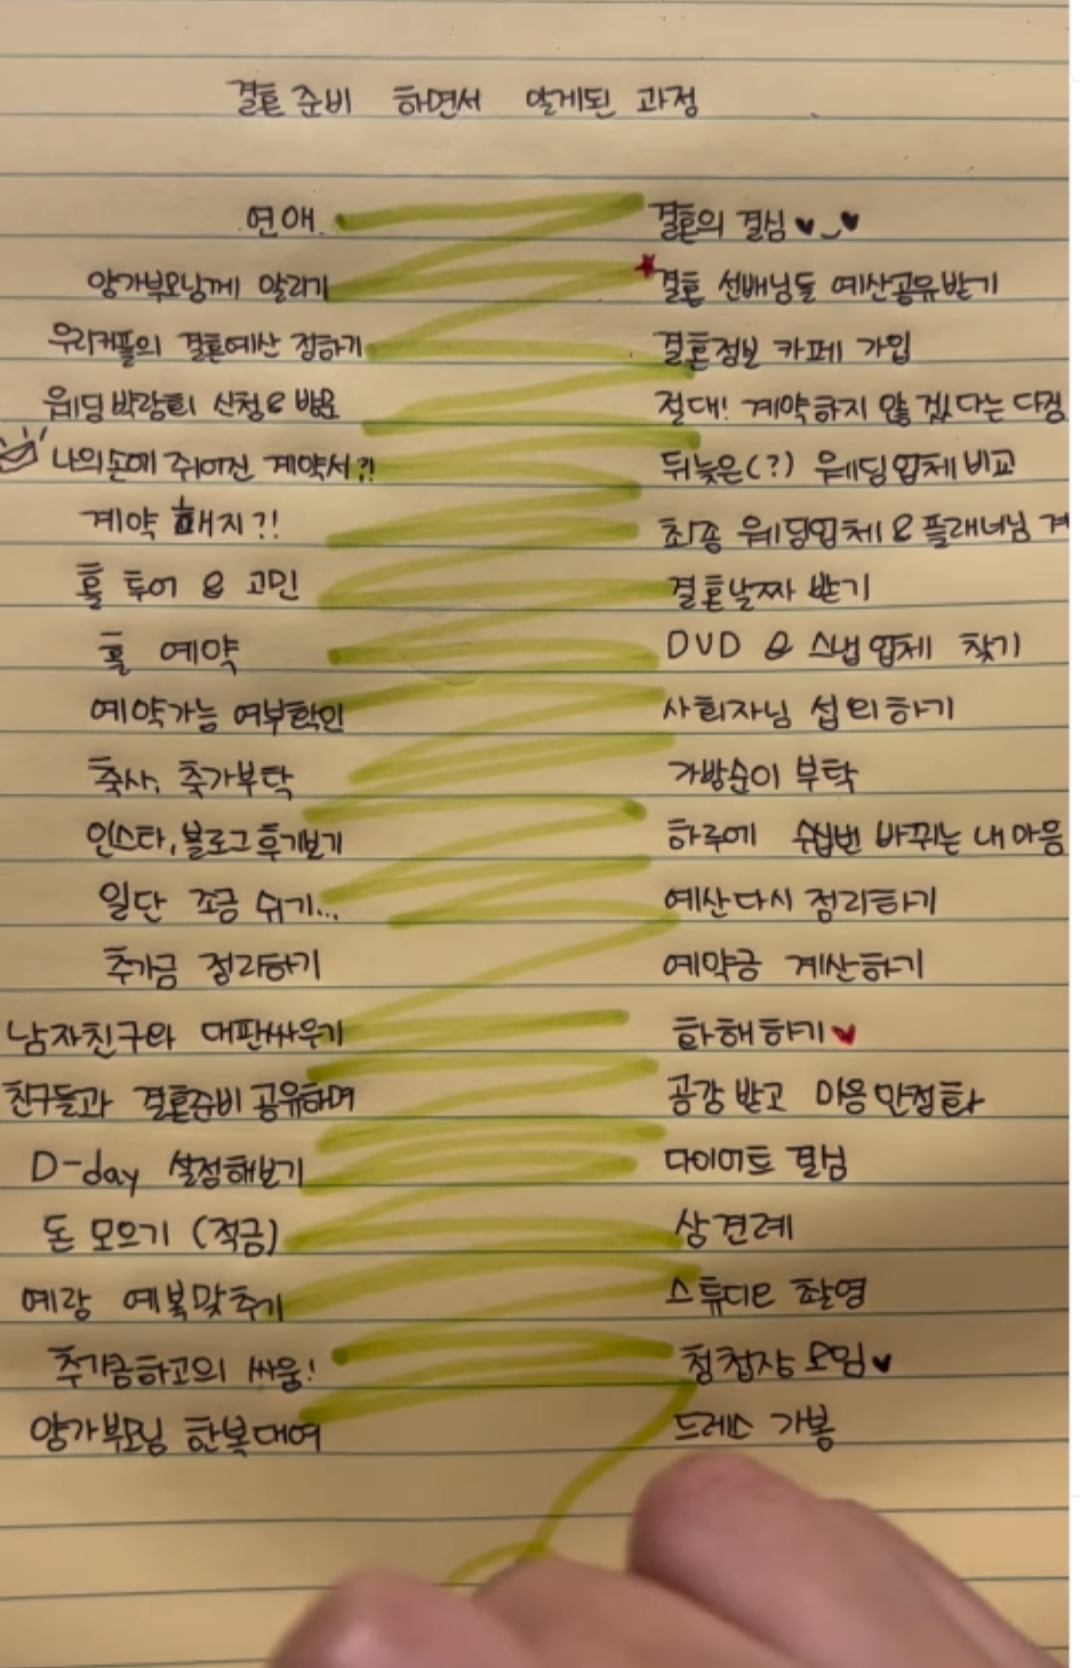 결혼 준비 하면서 알게된 과정
연애 결혼의 결심 ♥‿♥
양가부모님께 알리기 ★결혼 선배님들 예산공유받기
우리커플의 결혼예산 정하기 결혼정보 카페 가입
웨딩박람회 신청 & 방문 절대! 계약하지 않겠다는 다짐
나의손에 쥐어진 계약서?! 뒤늦은(?) 웨딩업체비교
계약 해지?! 최종 웨딩업체 & 플래너님 계
홀 투어 & 고민 결혼날짜 받기
홀 예약 DVD & 스냅업체 찾기
예약가능 여부확인 사회자님 섭외하기
축사, 축가부탁 가방순이 부탁
인스타, 블로그후기보기 하루에 수십번 바뀌는 내 마음
일단 조금 쉬기... 예산다시 정리하기
추가금 정리하기 예약금 계산하기
남자친구와 대판싸우기 화해하기♥
친구들과 결혼준비 공유하며 공감 받고 마음안정화
D-day 설정해보기 다이어트 결심
돈 모으기 (적금) 상견례
예랑 예복맞추기 스튜디오 촬영
추가금하고의 싸움! 청첩장 모임♥
양가부모님 한복대여 드레스 가봉